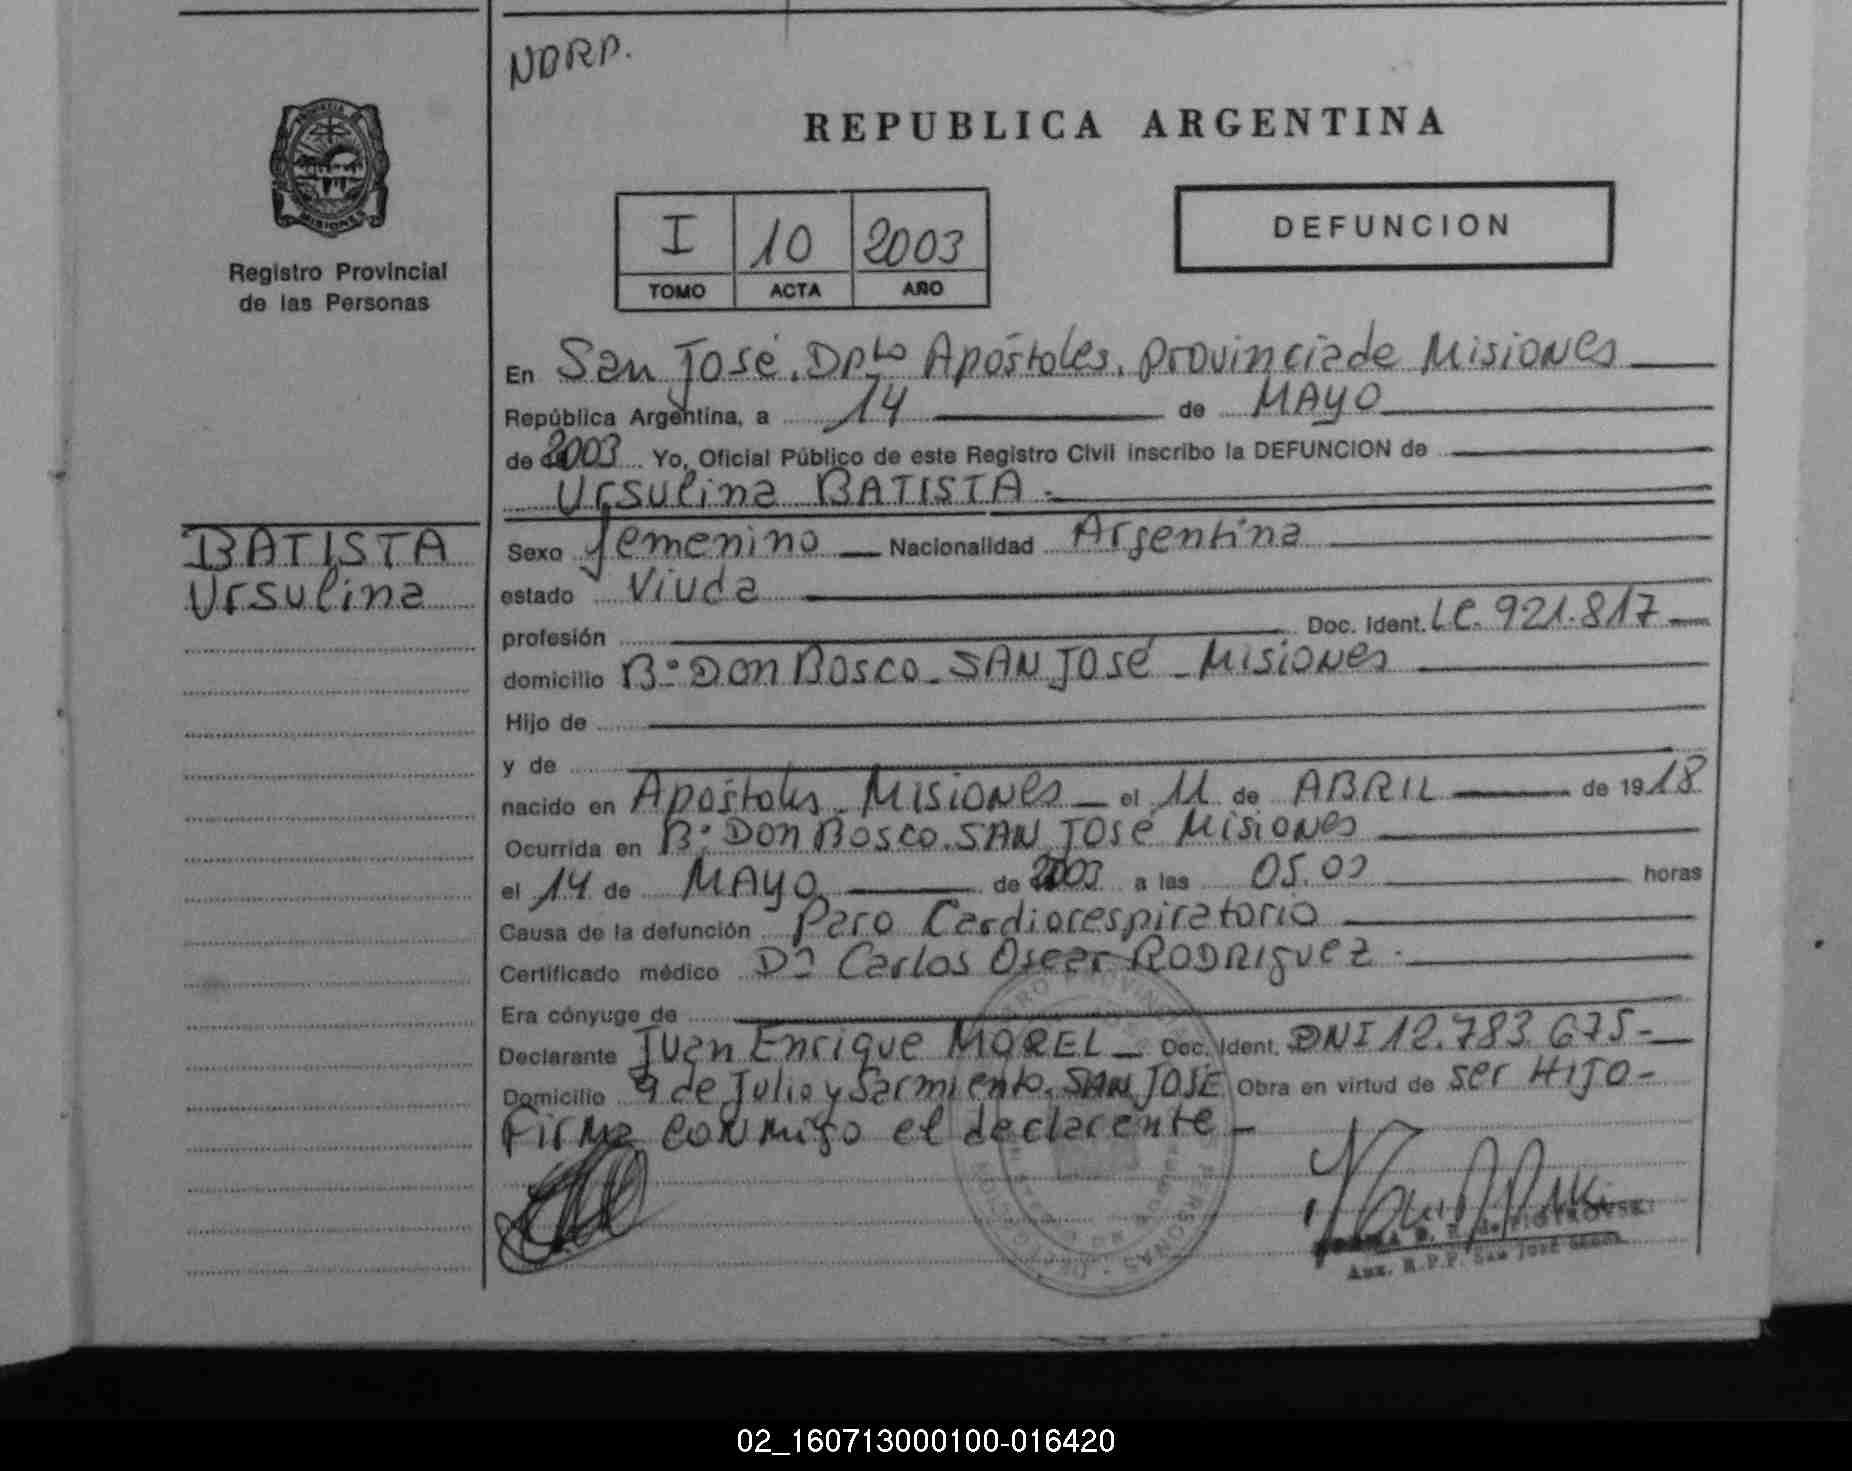 NDRP.
REPUBLICA ARGENTINA
PROVINCIA DE
MISIONES
Registro Provincial
de las Personas
I 10 2003
TOMO ACTA AÑO
DEFUNCION
En San José. Dpto Apóstoles. provincia de Misiones
República Argentina, a 14 de MAYO
de 2003 Yo, Oficial Público de este Registro Civil inscribo la DEFUNCION de
Ursulina BATISTA.-
BATISTA
Ursulina
Sexo femenino Nacionalidad Argentina
estado Viuda
profesión Doc. Ident. LC. 921.817
domicilio B° DON BOSCO - SAN JOSÉ - MISIONES
Hijo de
y de
nacido en Apóstoles - MISIONES el 11 de ABRIL de 1918
Ocurrida en B° DON BOSCO. SAN JOSÉ MISIONES
el 14 de MAYO de 2003 a las 05.00 horas
Causa de la defunción Paro Cardiorespiratorio
Certificado médico Dr Carlos Oscar RODRIGUEZ.
Era cónyuge de
Declarante Juan Enrique MOREL - Doc. Ident. DNI 12.783.675-
Domicilio 9 de Julio y Sarmiento. SAN JOSE Obra en virtud de ser HIJO-
Firma conmigo el declarante-
de PIOTROVSKI
Aux. R.P.P. San José
02_160713000100-016420